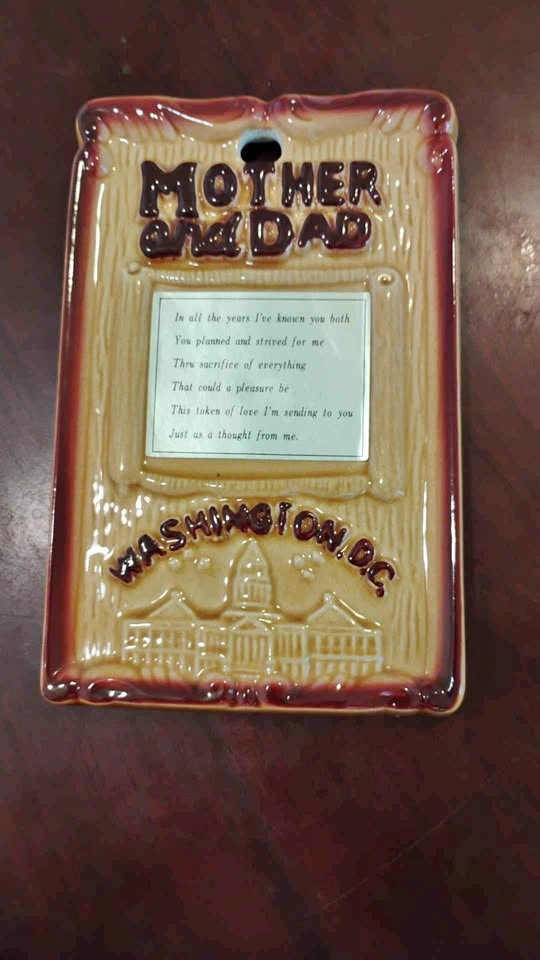 MOTHER
and DAD
In all the years I've known you both
You planned and strived for me
Thru sacrifice of everything
That could a pleasure be
This token of love I'm sending to you
Just as a thought from me.
WASHINGTON, D.C.